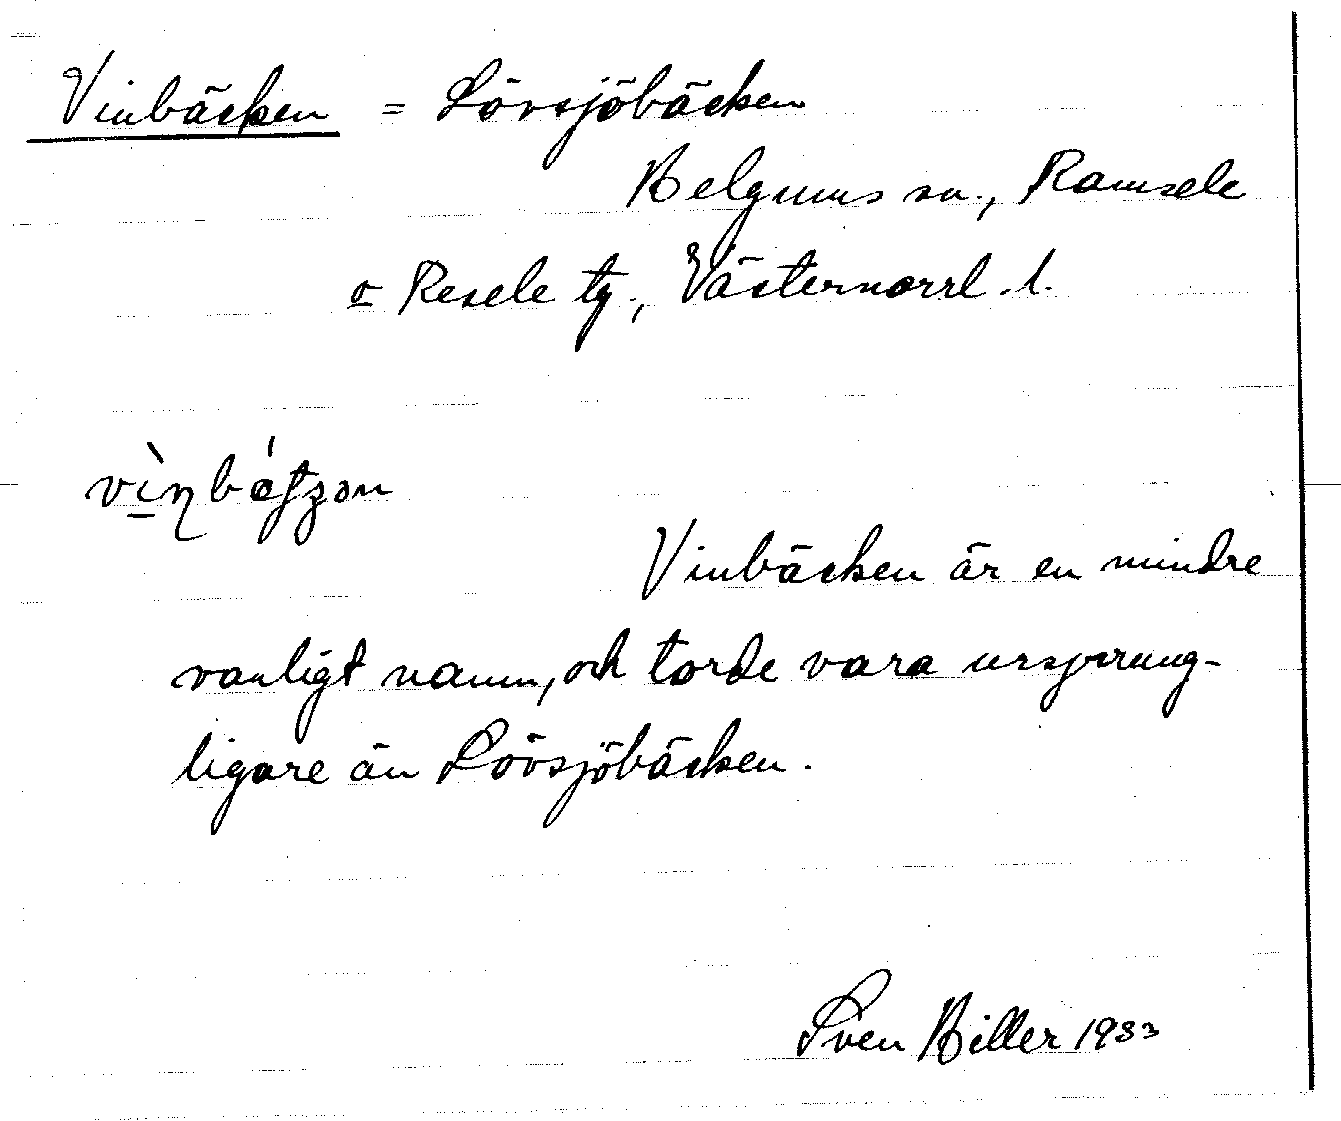 Vinbäcken = Lövsjöbäcken
Helgums sn., Ramsele
o Resele tg, Västernorrl. l.
Vinbäcken är en mindre
vanligt namn, och torde vara ursprung-
ligare än Lövsjöbäcken.
Sven Hiller 1933